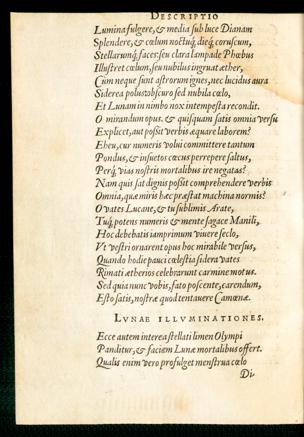 DESCRIPTIO
Lumina fulgere, & media sub luce Dianam
Splendere, & cœlum noctuq́, dieq́ coruscum,
Stellarumq́; faces: seu clara lampade Phœbus
Illustret cœlum, seu nubilus ingruat æther,
Cùm neque sunt astrorum ignes, nec lucidus aura
Siderea polus: obscuro sed nubila cœlo,
Et Lunam in nimbo nox intempesta recondit.
O mirandum opus. & quisquam satis omnia versu
Explicet, aut possit verbis æquare laborem?
Eheu, cur numeris volui committere tantum
Pondus, & insuetos cæcus perrepere saltus,
Perq́; vias nostris mortalibus ire negatas?
Nam quis sat dignis possit comprehendere verbis
Omnia, quæ miris hæc præstat machina normis?
O vates Lucane, & tu sublimis Arate,
Tuq́; potens numeris & mente sagace Manili,
Hoc debebatis iamprimum viuere seclo,
Vt vestri ornarent opus hoc mirabile versus,
Quando hodie pauci cælestia sidera vates
Rimati ætherios celebrarunt carmine motus.
Sed quia nunc vobis, fato poscente, carendum,
Esto satis, nostræ quod tentauere Camœnæ.
LVNAE ILLVMINATIONES.
Ecce autem interea stellati limen Olympi
Panditur, & faciem Lunæ mortalibus offert.
Qualis enim vero profulget menstrua cœlo
Di-